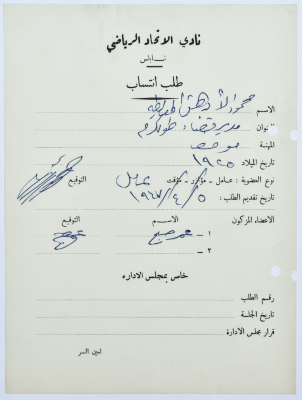 نادي الاتحاد الرياضي
نابلس
طلب انتساب
الاسم محمد
العنوان مدير قضاء طولكرم
المهنة موظف
تاريخ الميلاد ١٩٢٥
نوع العضوية : عامل - مؤازر - مؤقت عامل التوقيع
تاريخ تقديم الطلب : ٥ / ٤ / ١٩٦٧
الاعضاء المزكون الاسم التوقيع
١ -
٢ -
خاص بمجلس الاداره
رقم الطلب
تاريخ الجلسة
قرار مجلس الادارة
امين السر